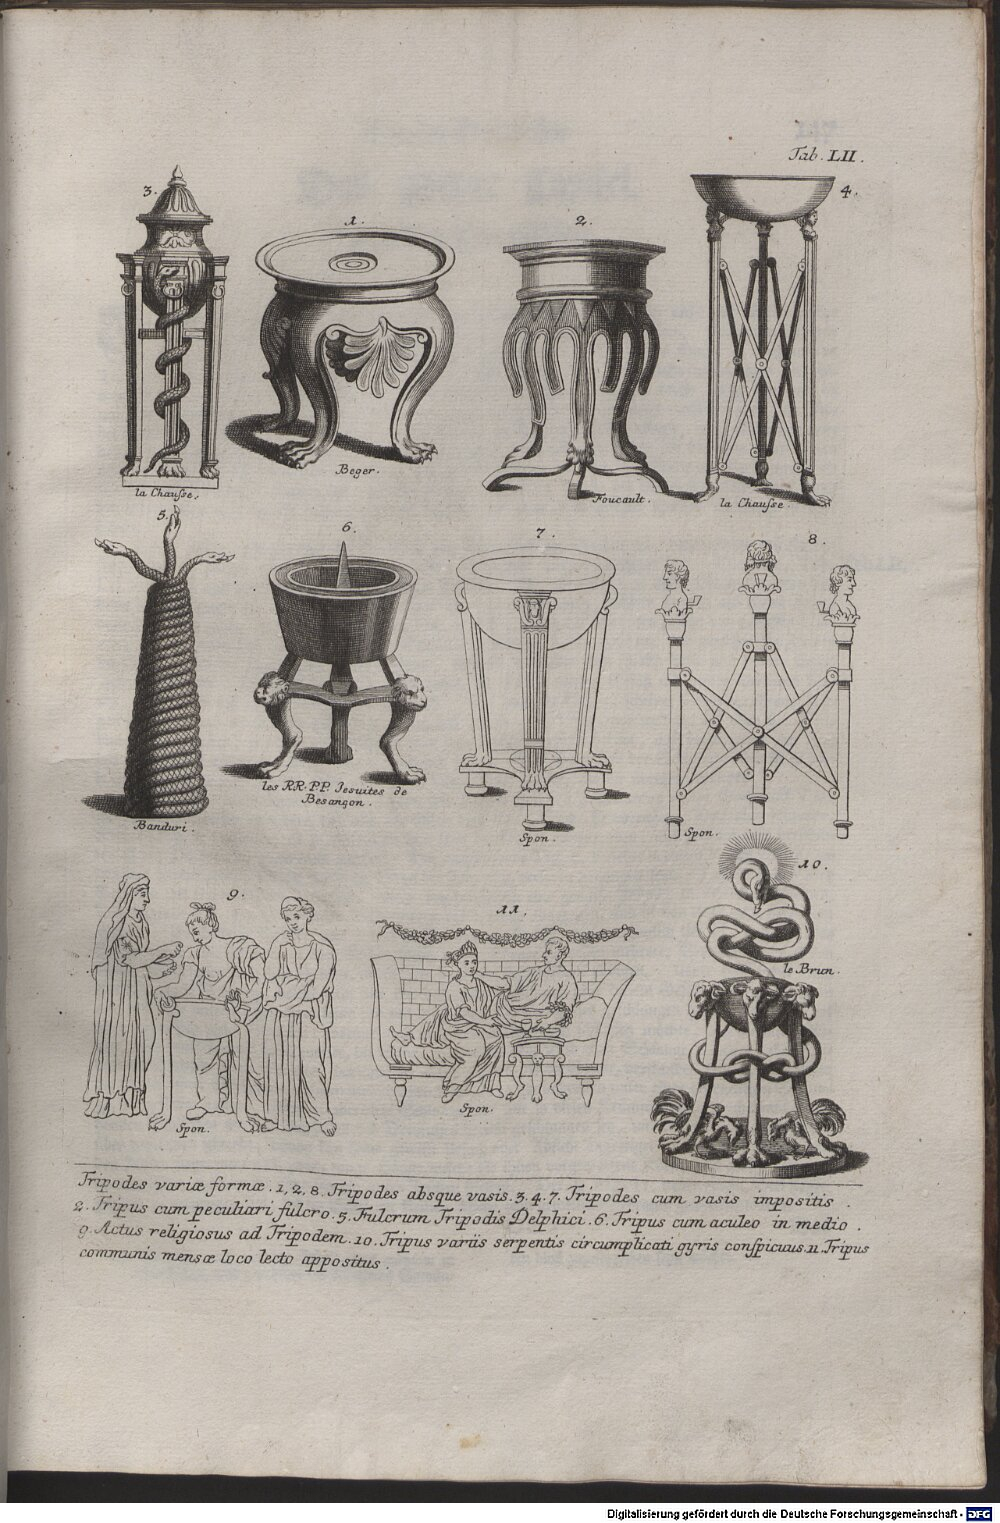 Tab. LII.
3.
1.
2.
4.
la Chausse.
Beger.
Foucault.
la Chausse.
5.
6.
7.
8.
Banduri.
les RR. P.P. Jesuites de
Besançon.
Spon.
Spon.
9.
11.
10.
le Brun.
Spon.
Spon.
Tripodes variæ formæ. 1, 2, 8. Tripodes absque vasis. 3. 4. 7. Tripodes cum vasis impositis.
2. Tripus cum peculiari fulcro. 5. Fulcrum Tripodis Delphici. 6. Tripus cum aculeo in medio.
9. Actus religiosus ad Tripodem. 10. Tripus variis serpentis circumplicati gyris conspicuus. 11. Tripus
communis mensæ loco lecto appositus.
Digitalisierung gefördert durch die Deutsche Forschungsgemeinschaft - DFG